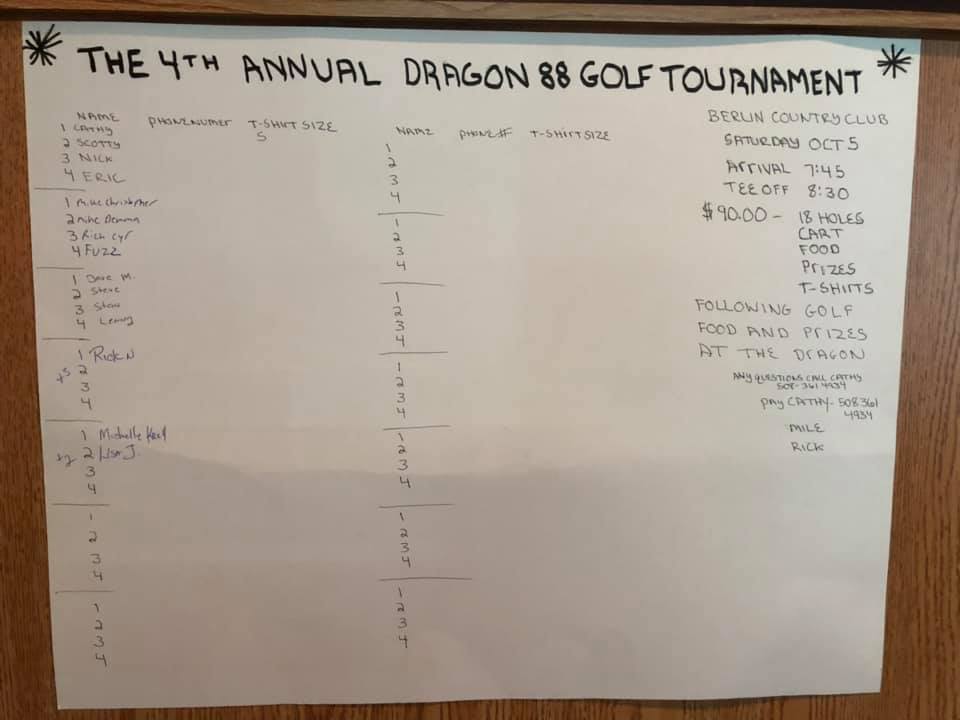 THE 4TH ANNUAL DRAGON 88 GOLF TOURNAMENT
NAME PHONE NUMER T-SHIRT SIZE
1 CATHY S
2 SCOTTY
3 NICK
4 ERIC
1 Mike Christopher
2 Mike
3 Rich Cyr
4 FUZZ
1 Dave M.
2 Steve
3
4 Lenny
1 Rick N
2
+3
3
4
1 Michelle
+2 2 Lisa J.
3
4
1
2
3
4
1
2
3
4
NAME PHONE# T-SHIRT SIZE
1
2
3
4
1
2
3
4
1
2
3
4
1
2
3
4
1
2
3
4
1
2
3
4
1
2
3
4
BERLIN COUNTRY CLUB
SATURDAY OCT 5
ARRIVAL 7:45
TEE OFF 8:30
$90.00 - 18 HOLES
CART
FOOD
PRIZES
T-SHIRTS
FOLLOWING GOLF
FOOD AND PRIZES
AT THE DRAGON
ANY QUESTIONS CALL CATHY
508-361 4934
PAY CATHY - 508 361
4934
MIKE
RICK